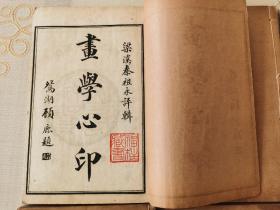 梁溪秦祖永評輯
畫學心印
鴛湖顧麃題